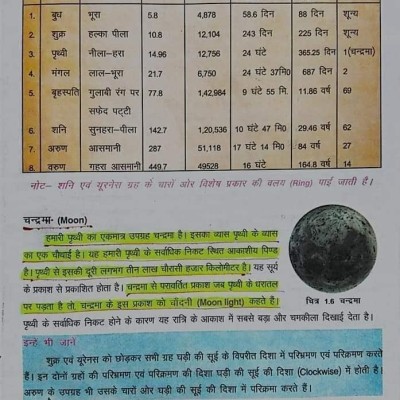 1. बुध भूरा 5.8 4,878 58.6 दिन 88 दिन शून्य
2. शुक्र हल्का पीला 10.8 12,104 243 दिन 225 दिन शून्य
3. पृथ्वी नीला-हरा 14.96 12,756 24 घंटे 365.25 दिन 1(चन्द्रमा)
4. मंगल लाल-भूरा 21.7 6,750 24 घंटे 37मि0 687 दिन 2
5. बृहस्पति गुलाबी रंग पर 77.8 1,42,984 9 घंटे 55 मि. 11.86 वर्ष 69
सफेद पट्टी
6- शनि सुनहरा-पीला 142.7 1,20,536 10 घंटे 47 मि0 29.46 वर्ष 62
7- अरुण आसमानी 287 51,118 17 घंटे 14 मि0 84 वर्ष 27
8- वरुण गहरा आसमानी 449.7 49528 16 घंटे 164.8 वर्ष 14
नोट- शनि एवं यूरेनस ग्रह के चारों ओर विशेष प्रकार की वलय (Ring) पाई जाती है।
चन्द्रमा- (Moon)
हमारी पृथ्वी का एकमात्र उपग्रह चन्द्रमा है। इसका व्यास पृथ्वी के व्यास
का एक चौथाई है। यह हमारी पृथ्वी के सर्वाधिक निकट स्थित आकाशीय पिण्ड
है। पृथ्वी से इसकी दूरी लगभग तीन लाख चौरासी हजार किलोमीटर है। यह सूर्य
के प्रकाश से प्रकाशित होता है। चन्द्रमा से परावर्तित प्रकाश जब पृथ्वी के धरातल
पर पड़ता है तो, चन्द्रमा के इस प्रकाश को चाँदनी (Moon light) कहते हैं।
पृथ्वी के सर्वाधिक निकट होने के कारण यह रात्रि के आकाश में सबसे बड़ा और चमकीला दिखाई देता है।
चित्र 1.6 चन्द्रमा
इन्हें भी जानें
शुक्र एवं यूरेनस को छोड़कर सभी ग्रह घड़ी की सूई के विपरीत दिशा में परिभ्रमण एवं परिक्रमण करते
हैं। इन दोनों ग्रहों की परिभ्रमण एवं परिक्रमण की दिशा घड़ी की सूई की दिशा (Clockwise) में होती है।
अरुण के उपग्रह भी उसके चारों ओर घड़ी की सूई की दिशा में परिक्रमा करते हैं।